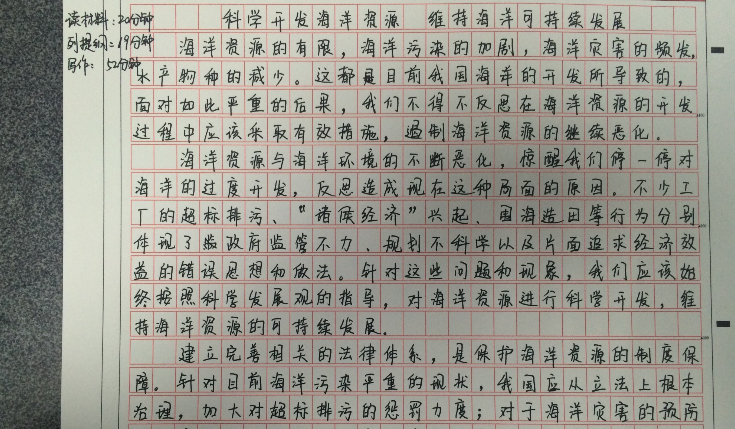 读材料：20分钟
列提纲：19分钟
写作：52分钟
科学开发海洋资源 维持海洋可持续发展
海洋资源的有限，海洋污染的加剧，海洋灾害的频发，
水产物种的减少。这都是目前我国海洋的开发所导致的，
面对如此严重的后果，我们不得不反思在海洋资源的开发
过程中应该采取有效措施，遏制海洋资源的继续恶化。
海洋资源与海洋环境的不断恶化，惊醒我们停一停对
海洋的过度开发，反思造成现在这种局面的原因。不少工
厂的超标排污、“诸侯经济”兴起、围海造田等行为分别
体现了当政府监管不力、规划不科学以及片面追求经济效
益的错误思想和做法。针对这些问题和现象，我们应该始
终按照科学发展观的指导，对海洋资源进行科学开发，维
持海洋资源的可持续发展。
建立完善相关的法律体系，是保护海洋资源的制度保
障。针对目前海洋污染严重的现状，我国应从立法上根本
治理，加大对超标排污的惩罚力度；对于海洋灾害的预防